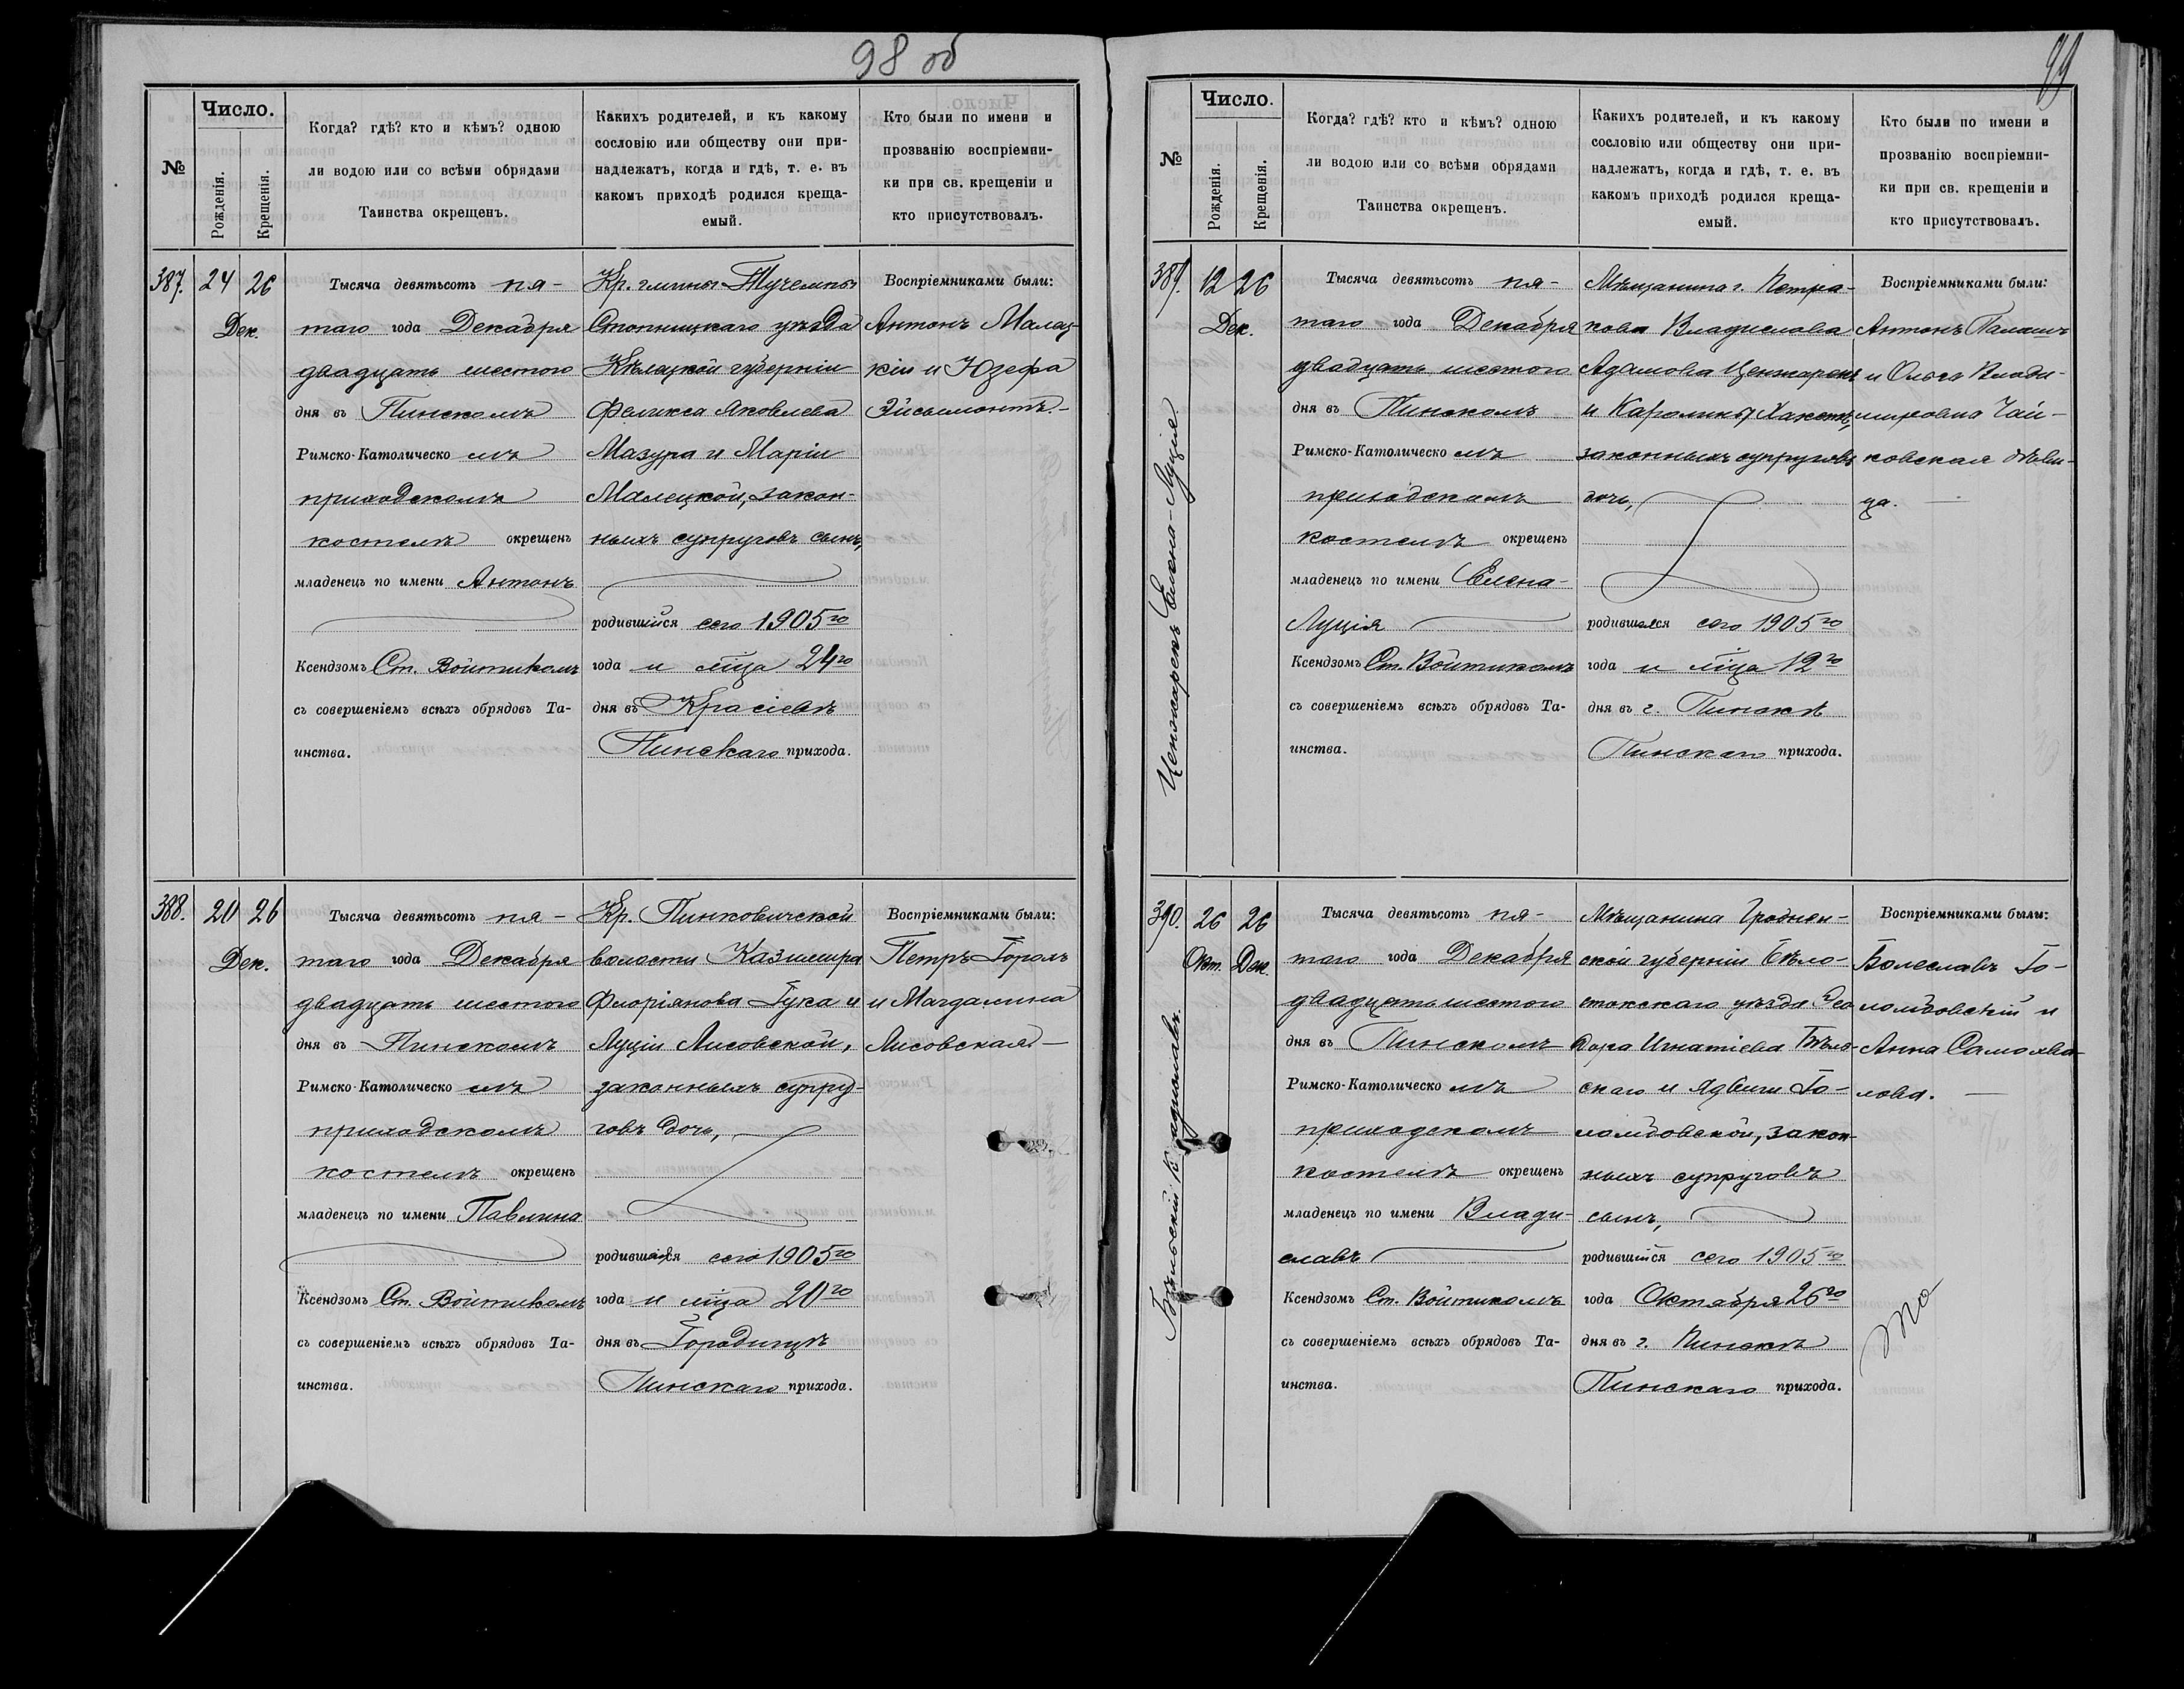 98 об
№
Число.
Рожденія.
Крещенія.
Когда? гдѣ? кто и кѣмъ? одною
ли водою или со всѣми обрядами
Таинства окрещенъ.
Какихъ родителей, и къ какому
сословію или обществу они при-
надлежатъ, когда и гдѣ, т. е. въ
какомъ приходѣ родился креща-
емый.
Кто были по имени и
прозванію воспріемни-
ки при св. крещеніи и
кто присутствовалъ.
387.
24 26
Дек.
Тысяча девятьсотъ пя-
таго года Декабря
двадцать шестого
дня въ Пинскомъ
Римско-Католическо мъ
приходскомъ
костелѣ окрещенъ
младенецъ по имени Антонъ
Ксендзомъ Ст. Войтикомъ
съ совершеніемъ всѣхъ обрядовъ Та-
инства.
Кр. гмины
Стопницкаго уѣзда
Кѣлецкой губерніи
Феликса Яковлева
Мазура и Маріи
Малецкой, закон-
ныхъ супруговъ сынъ,
родившійся сего 1905го
года и м͠ца 24го
дня въ Красіевѣ
Пинскаго прихода.
Воспріемниками были:
Антонъ Малец-
кій и Юзефа
Эйсымонтъ.-
388.
20 26
Дек.
Тысяча девятьсотъ пя-
таго года Декабря
двадцать шестого
дня въ Пинскомъ
Римско-Католическо мъ
приходскомъ
костелѣ окрещенъ
младенецъ по имени Павлина
Ксендзомъ Ст. Войтикомъ
съ совершеніемъ всѣхъ обрядовъ Та-
инства.
Кр. Пинковичской
волости Казимира
Флоріянова Гука и
Луціи Лисовской,
законныхъ супру-
говъ дочь,
родившаяся сего 1905го
года и м͠ца 20го
дня въ Городищѣ
Пинскаго прихода.
Воспріемниками были:
Петръ Горолъ
и Магдалина
Лисовская.-
99
№
Число.
Рожденія.
Крещенія.
Когда? гдѣ? кто и кѣмъ? одною
ли водою или со всѣми обрядами
Таинства окрещенъ.
Какихъ родителей, и къ какому
сословію или обществу они при-
надлежатъ, когда и гдѣ, т. е. въ
какомъ приходѣ родился креща-
емый.
Кто были по имени и
прозванію воспріемни-
ки при св. крещеніи и
кто присутствовалъ.
389.
12 26
Дек.
Ценжарекъ Елена-Луція.
Тысяча девятьсотъ пя-
таго года Декабря
двадцать шестого
дня въ Пинскомъ
Римско-Католическо мъ
приходскомъ
костелѣ окрещенъ
младенецъ по имени Елена-
Луція
Ксендзомъ Ст. Войтикомъ
съ совершеніемъ всѣхъ обрядовъ Та-
инства.
Мѣщанина г. Петра-
кова Владислава
Адамова Ценжарекъ
и Каролины
законныхъ супруговъ
дочь,
родившаяся сего 1905го
года и м͠ца 12го
дня въ г. Пинскѣ
Пинскаго прихода.
Воспріемниками были:
Антонъ
и Ольга Влади-
мировна Чай-
ковская дѣви-
ца.
390.
26 26
Окт. Дек.
Бѣльскій
Тысяча девятьсотъ пя-
таго года Декабря
двадцать шестого
дня въ Пинскомъ
Римско-Католическо мъ
приходскомъ
костелѣ окрещенъ
младенецъ по имени Влади-
славъ
Ксендзомъ Ст. Войтикомъ
съ совершеніемъ всѣхъ обрядовъ Та-
инства.
Мѣщанина Гроднен-
ской губерніи Бѣло-
стокскаго уѣзда Ѳео-
дора Игнатіева Бѣль-
скаго и Ядвиги Го-
ломбовской, закон-
ныхъ супруговъ
сынъ,
родившійся сего 1905го
года Октября 26го
дня въ г. Пинскѣ
Пинскаго прихода.
Воспріемниками были:
Болеславъ Го-
ломбовскій и
Анна Самойва-
лова.